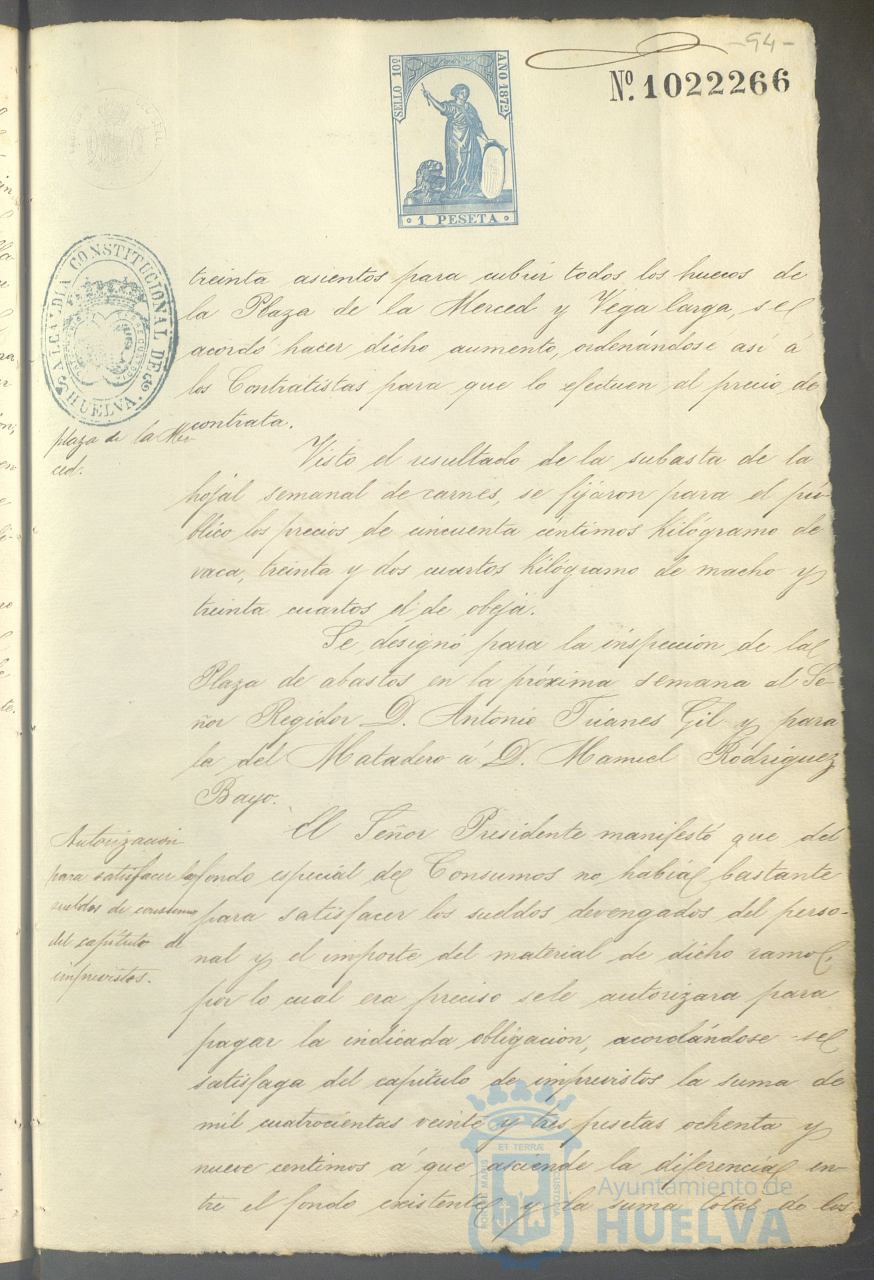 -94-
SELLO 10º
AÑO 1872
1 PESETA
Nº 1022266
ALCALDIA CONSTITUCIONAL DE HUELVA.
treinta asientos para cubrir todos los huecos de
la Plaza de la Merced y Vega larga, se
acordó hacer dicho aumento, ordenándose así á
los Contratistas para que lo efectuen al precio de
contrata.
plaza de la Mer
ced.
Visto el resultado de la subasta de la
hoja semanal de carnes, se fijaron para el pú-
blico los precios de cincuenta centimos kilógramo de
vaca, treinta y dos cuartos kilógramo de macho y
treinta cuartos el de obeja.
Se designó para la inspeccion de la
Plaza de abastos en la próxima semana al Se-
ñor Regidor D. Antonio Trianes Gil y para
la del Matadero á D. Manuel Rodriguez
Bayo.
Autorizacion
para satisfacer los
sueldos de consumos
del capítulo de
imprevistos.
El Señor Presidente manifestó que del
fondo especial de Consumos no había bastante
para satisfacer los sueldos devengados del perso-
nal y el importe del material de dicho ramo,
por lo cual era preciso se le autorizara para
pagar la indicada obligacion, acordándose se
satisfaga del capítulo de imprevistos la suma de
mil cuatrocientas veinte y tres pesetas ochenta y
nueve centimos á que asciende la diferencia en-
tre el fondo existente y la suma total de los
ET TERRÆ
PORTUS MARIS
CUSTODIA
Ayuntamiento de
HUELVA